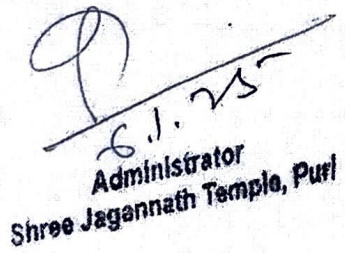 6.1.25
Administrator
Shree Jagannath Temple, Puri